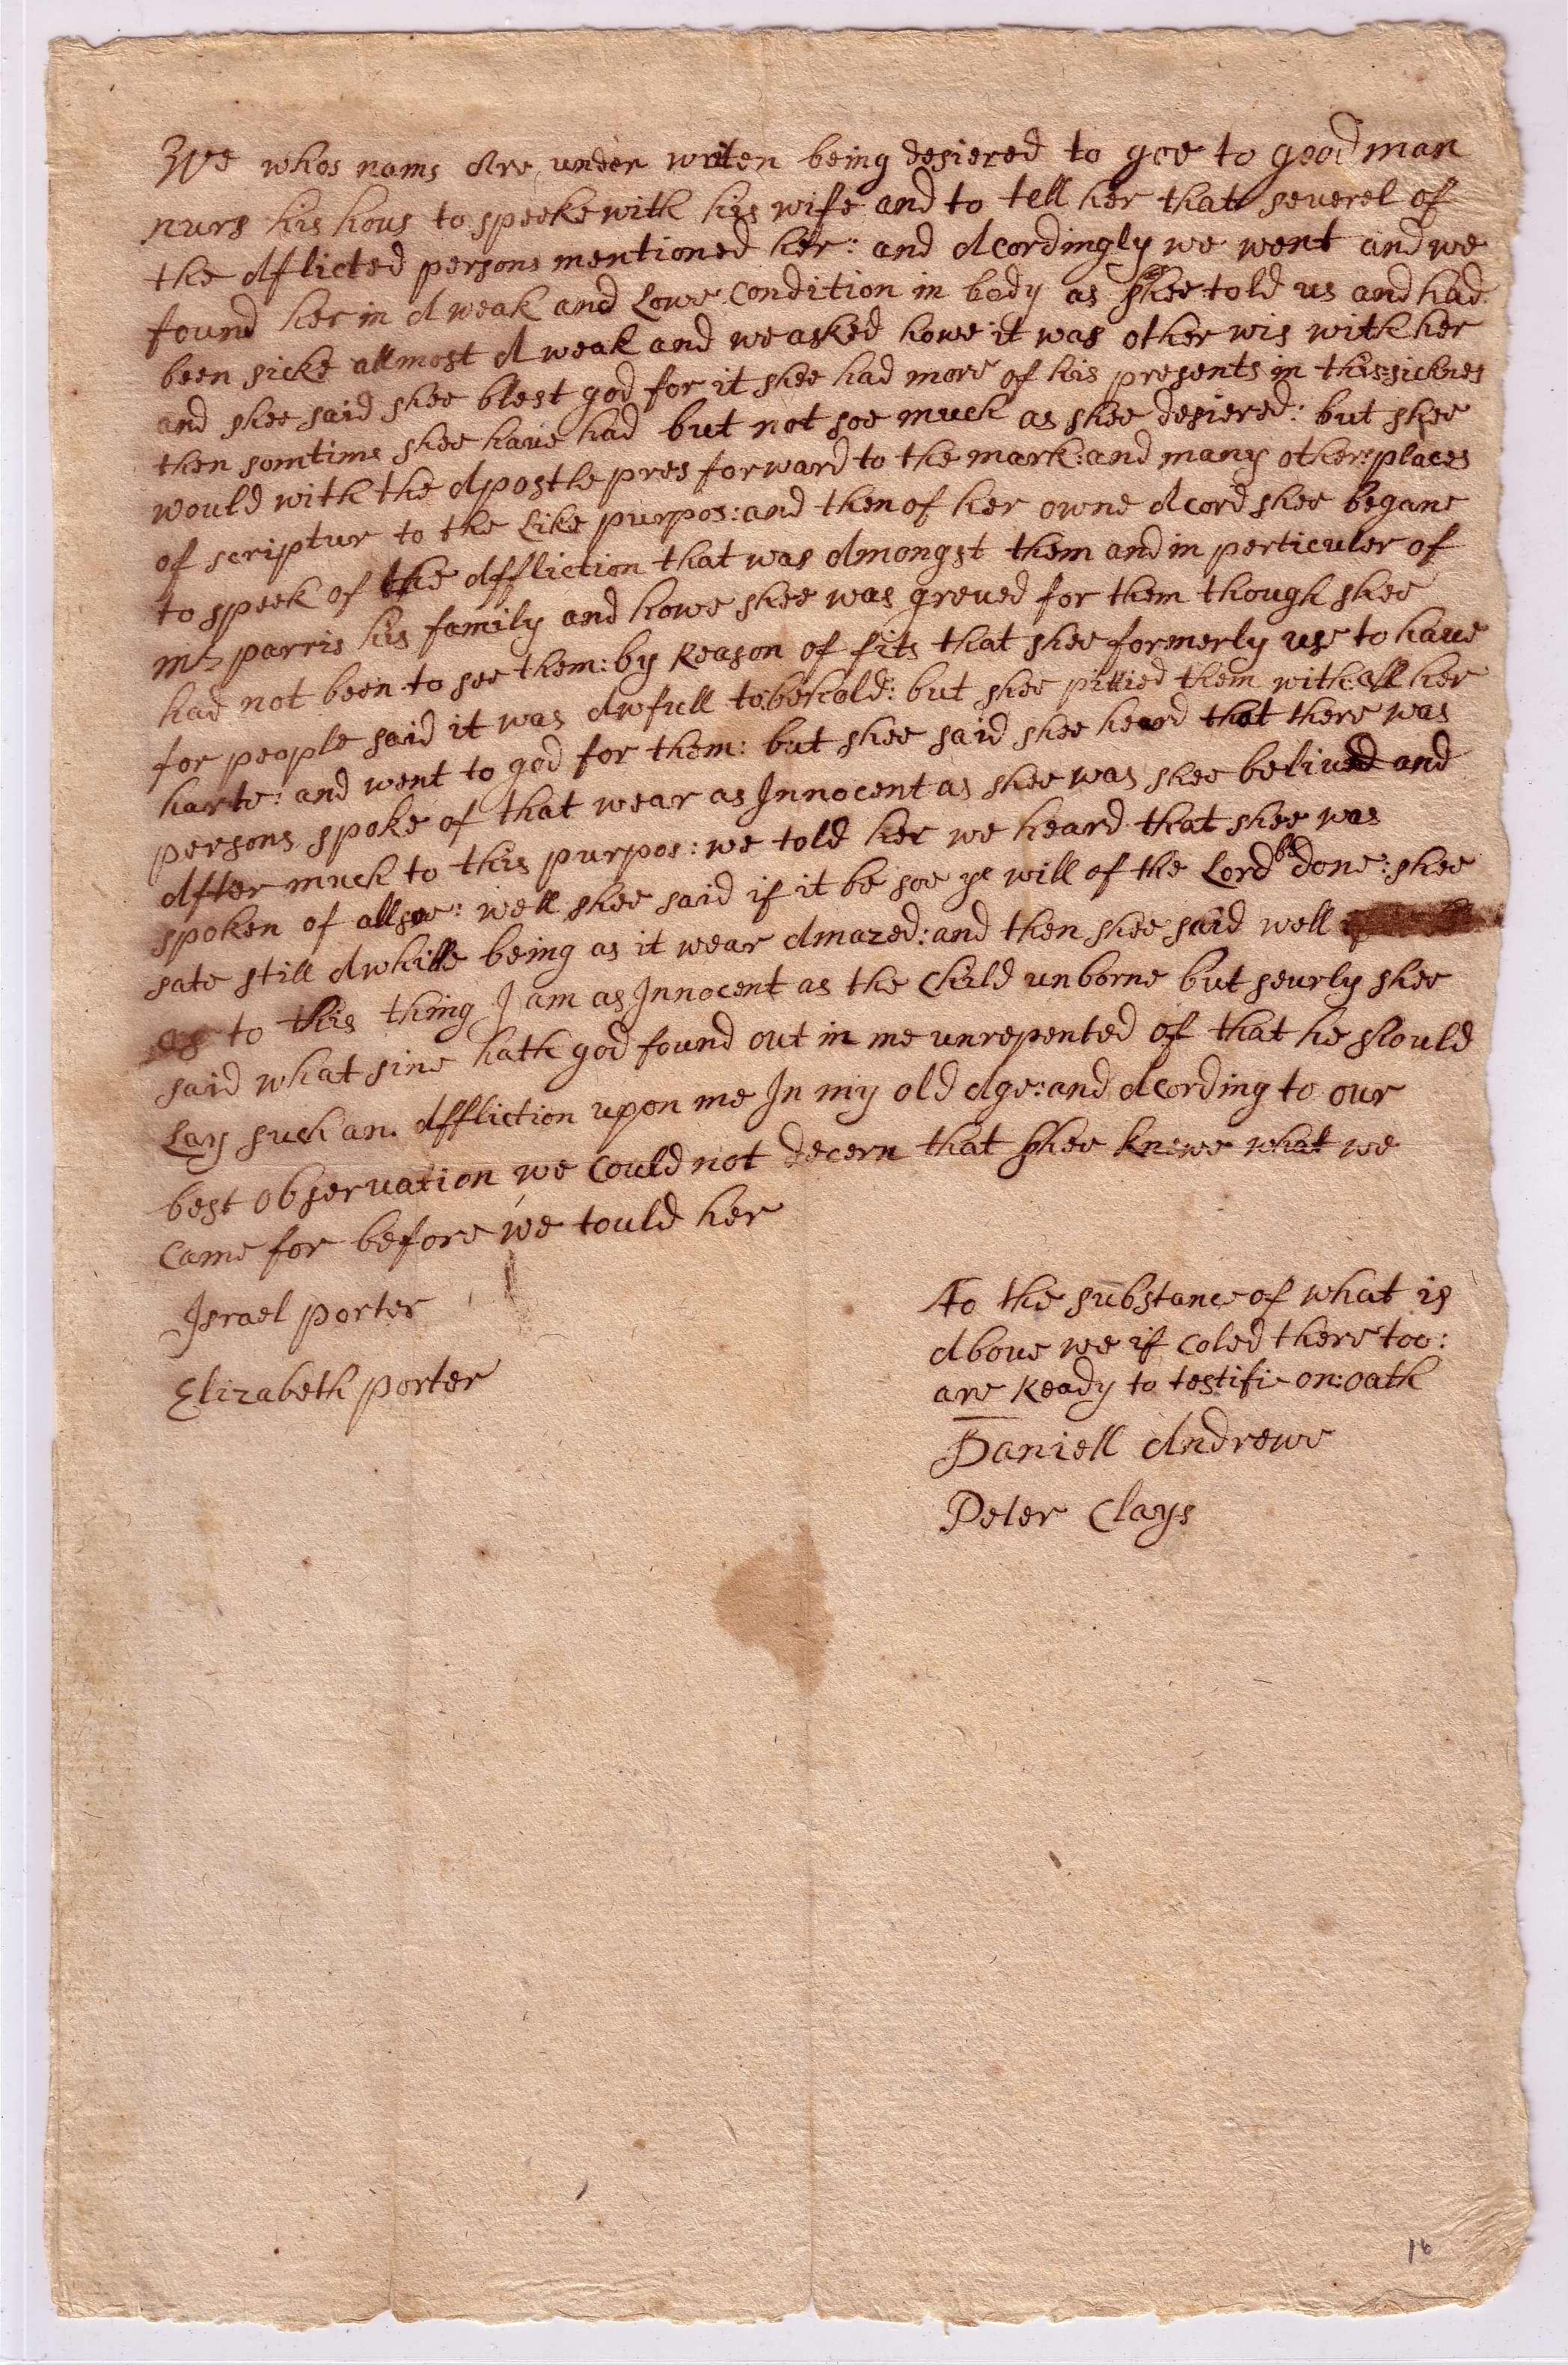 We whos nams Are under writen being desiered to goe to good man
nurs his hous to speeke with his wife and to tell her that severel of
the Aflicted persons mentioned her: and Acordingly we went and we
found her in A weak and Lowe condition in body as shee told us and had
been sicke allmost A weak and we asked howe it was other wis with her
and shee said shee blest god for it shee had more of his presents in this sicknes
then somtime shee have had but not soe much as shee desiered: but shee
would with the Apostle pres forward to the mark: and many other places
of scriptur to the Like purpos: and then of her owne Acord shee begane
to speek of the Affliction that was Amongst them and in perticuler of
mr parris his family and howe shee was greved for them though shee
had not been to see them: by Reason of fits that shee formerly use to have
for people said it was Awfull to: behold: but shee pittied them with: all her
harte: and went to god for them: but shee said shee heard that there was
persons spoke of that wear as Innocent as shee was shee belived and
After much to this purpos: we told her we heard that shee was
spoken of allsoe: well shee said if it be soe ye will of the Lord be done: shee
sate still Awhille being as it wear Amazed: and then shee said well
as to this thing I am as Innocent as the Child unborne but seurly shee
said what sine hath god found out in me unrepented of that he should
Lay such an Affliction upon me In my old Age: and Acording to our
best observation we could not decern that shee knewe what we
came for before we tould her
Israel porter
Elizabeth porter
To the substance of what is
Above we if caled there too:
are Ready to testifie on: oath
Daniell Andrewe
Peter Clays
16